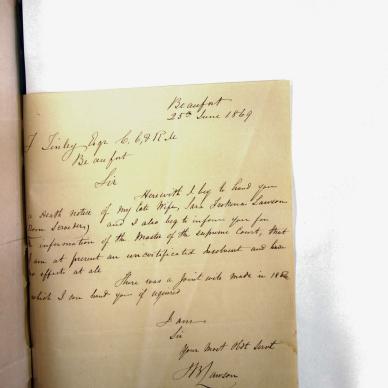 Beaufort
25th June 1869
J Tinley Esqr C. C & R. M
Beaufort
Sir
Herewith I beg to hand you
a Death notice of my late Wife, Sara Lawson
and I also beg to inform you for
information of the Master of the supreme Court, that
I am at present an uncertificated Insolvent and have
no effects at all
There was a Joint will made in
which I can hand you if required
I am
Sir
Your Most Obdt Servt
Lawson